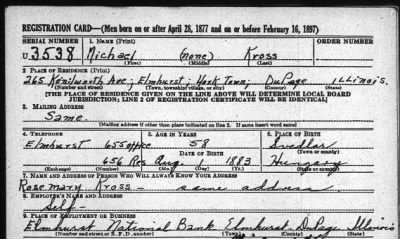 REGISTRATION CARD—(Men born on or after April 28, 1877 and on or before February 16, 1897)
SERIAL NUMBER 1. NAME (Print) ORDER NUMBER
U 3538 Michael (none) Kross
(First) (Middle) (Last)
2. PLACE OF RESIDENCE (Print)
265 Kenilworth Ave; Elmhurst; York Town; DuPage ILLINOIS.
(Number and street) (Town, township, village, or city) (County) (State)
[THE PLACE OF RESIDENCE GIVEN ON THE LINE ABOVE WILL DETERMINE LOCAL BOARD
JURISDICTION; LINE 2 OF REGISTRATION CERTIFICATE WILL BE IDENTICAL]
3. MAILING ADDRESS
Same.
[Mailing address if other than place indicated on line 2. If same insert word same]
4. TELEPHONE 5. AGE IN YEARS 6. PLACE OF BIRTH
Elmhurst 655 office 58 Svedlar
DATE OF BIRTH (Town or county)
656 Res Aug. 1 1883 Hungary
(Exchange) (Number) (Mo.) (Day) (Yr.) (State or country)
7. NAME AND ADDRESS OF PERSON WHO WILL ALWAYS KNOW YOUR ADDRESS
Rosemary Kross same address
8. EMPLOYER'S NAME AND ADDRESS
Self-
9. PLACE OF EMPLOYMENT OR BUSINESS
Elmhurst National Bank Elmhurst DuPage Illinois
(Number and street or R. F. D. number) (Town) (County) (State)